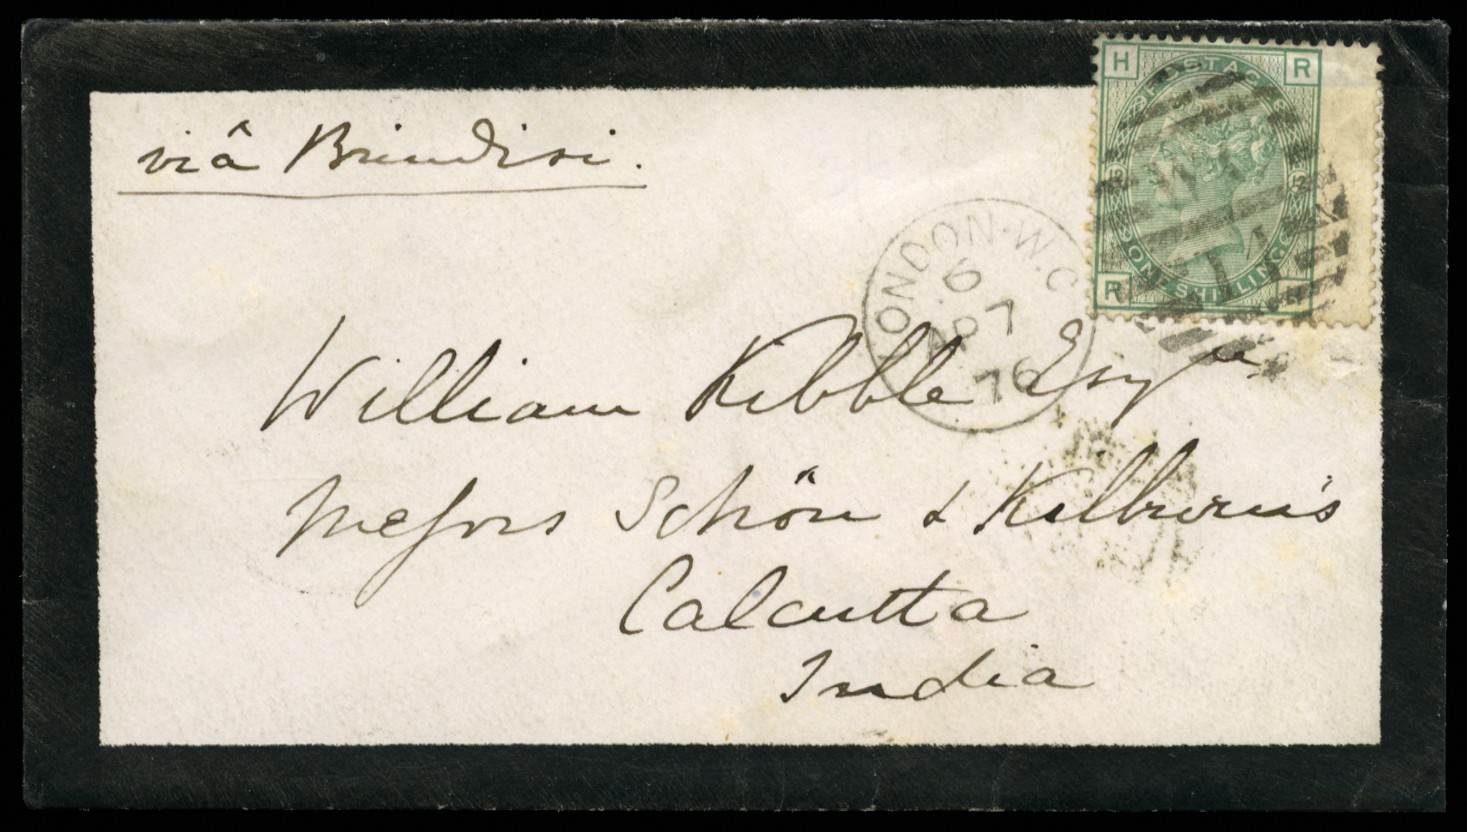 viâ Brindisi.
H R
POSTAGE
ONE SHILLING
R H
LONDON·W.C
6
AP 7
76
William Kibble Esqre
Messrs Schön & Kilburn's
Calcutta
India